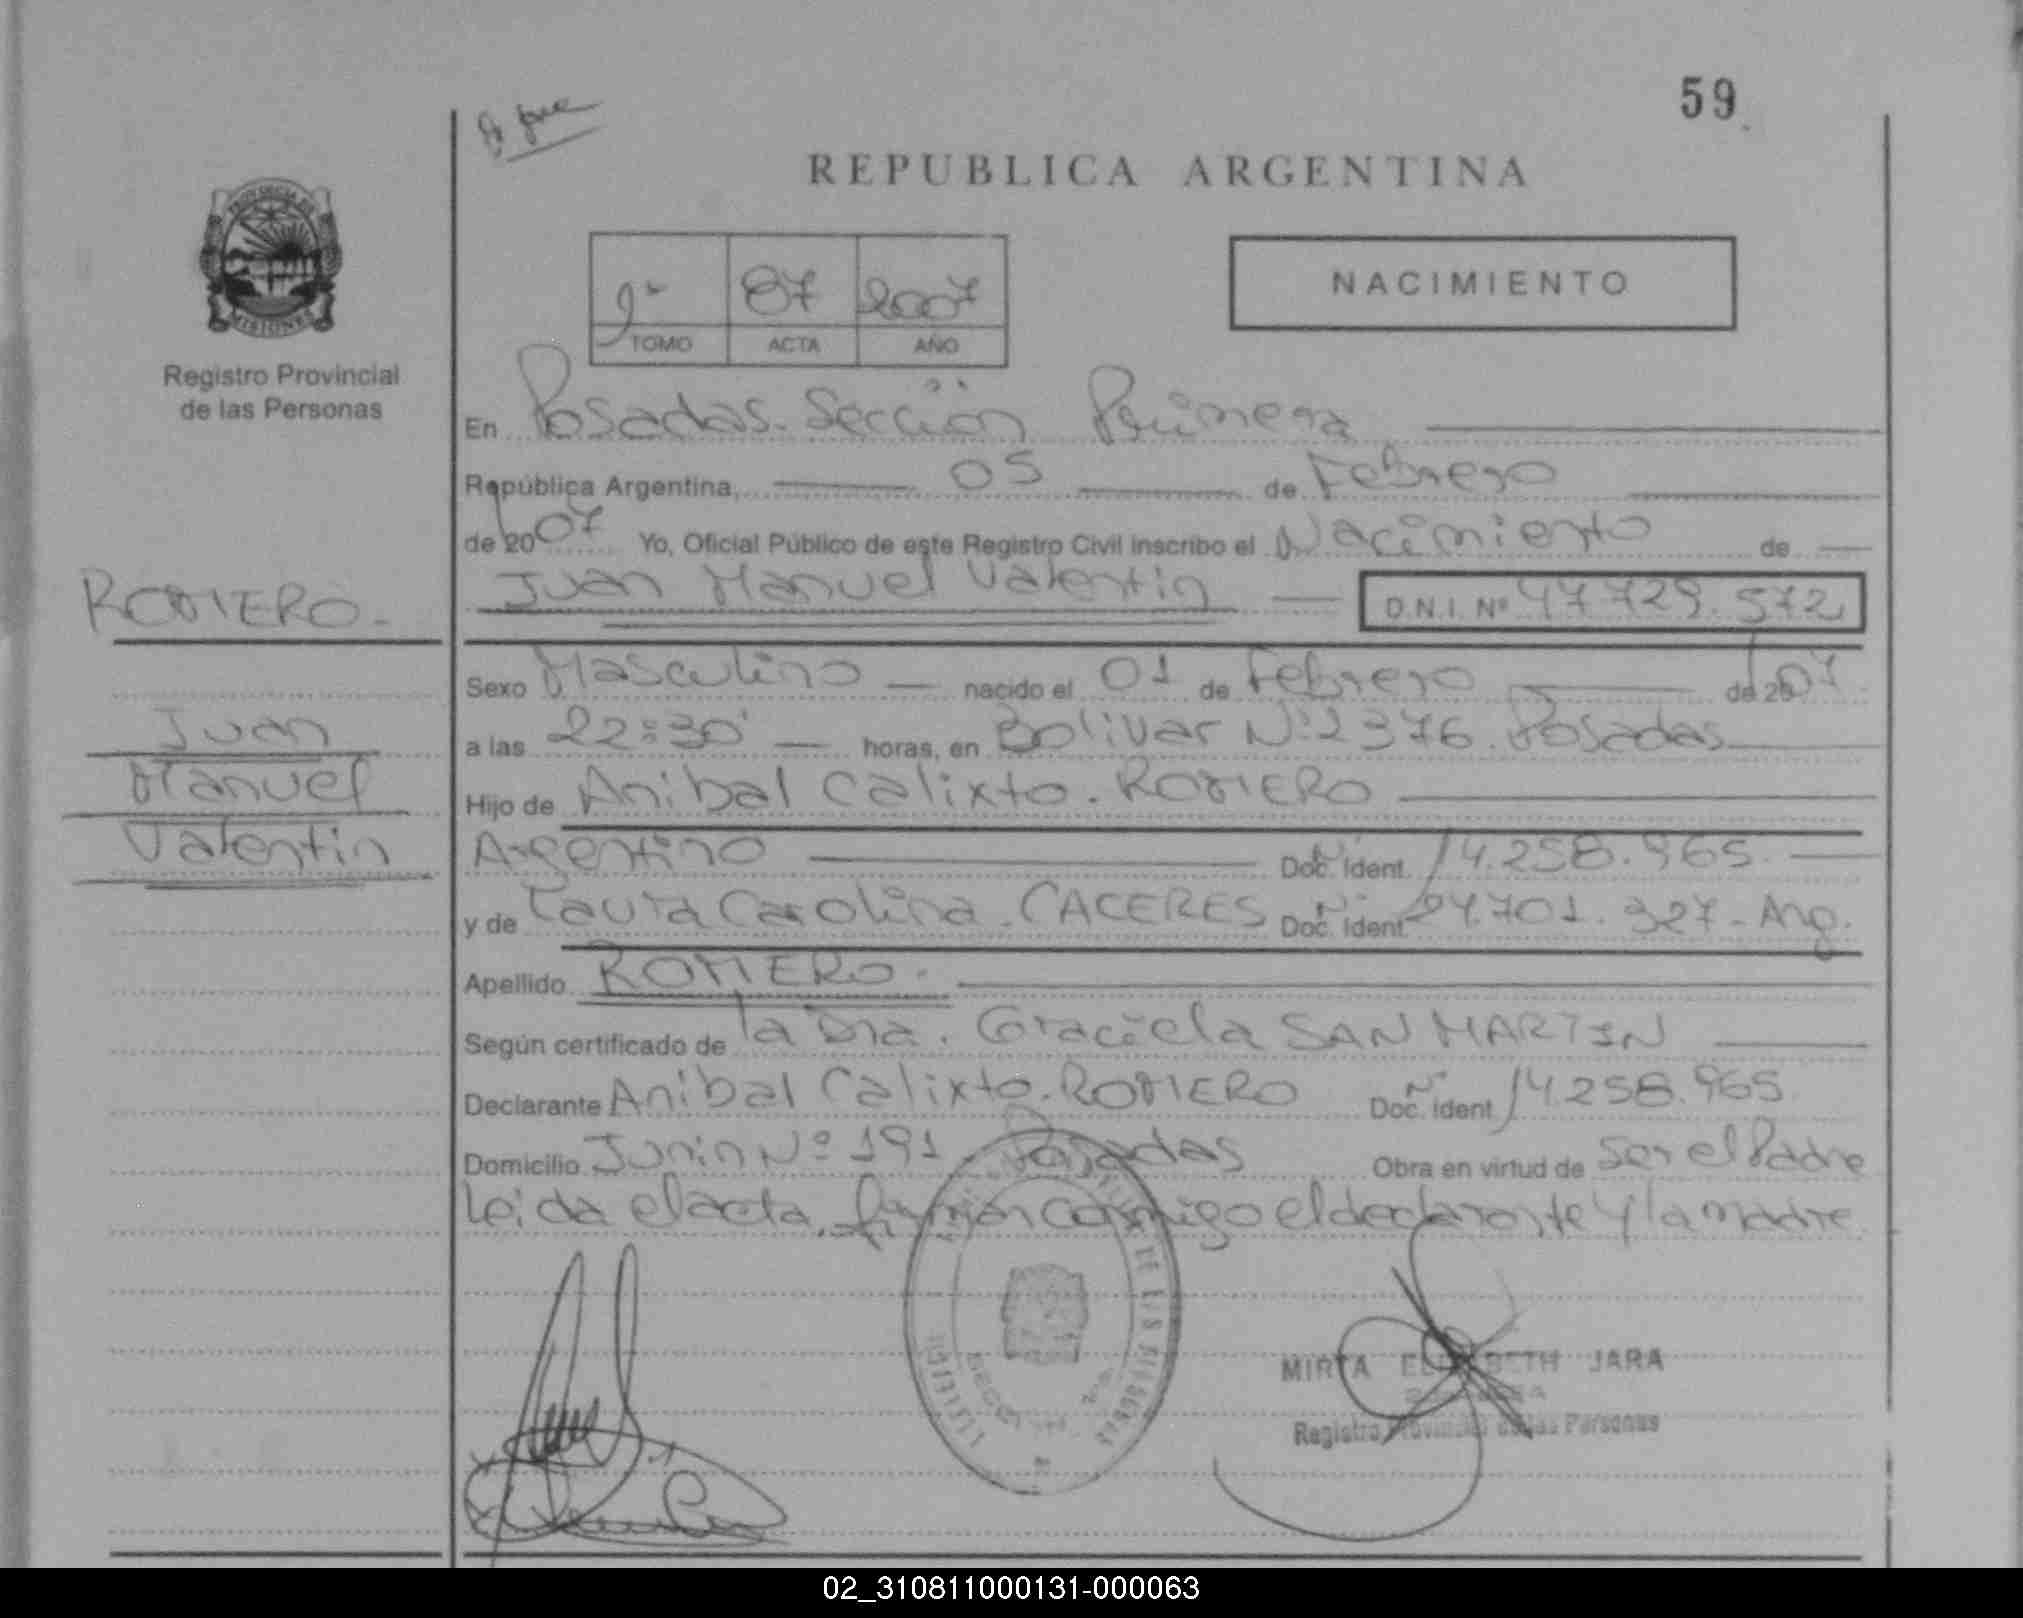 59
REPUBLICA ARGENTINA
PROVINCIA DE
MISIONES
Registro Provincial
de las Personas
87 2007
TOMO ACTA AÑO
NACIMIENTO
En Posadas. Sección Primera
República Argentina, 05 de Febrero
de 2007 Yo, Oficial Público de este Registro Civil inscribo el Nacimiento de
ROMERO.
Juan Manuel Valentin D.N.I. Nº 47.729.572
Sexo Masculino nacido el 01 de Febrero de 2007
Juan
Manuel
Valentin
a las 22:30' horas, en Bolivar Nº 2376. Posadas
Hijo de Anibal Calixto. ROMERO
Argentino Doc. Ident. Nº 14.258.965.
y de Laura Carolina. CACERES Doc. Ident. Nº 24.701.327 - Arg.
Apellido ROMERO.
Según certificado de la Dra. Graciela SAN MARTIN
Declarante Anibal Calixto. ROMERO Doc. Ident. Nº 14.258.965
Domicilio Junin Nº 191. Posadas Obra en virtud de ser el Padre
Leida el acta, firman conmigo el declarante y la madre.
MIRTA ELIZABETH JARA
Registro Provincial de las Personas
02_310811000131-000063